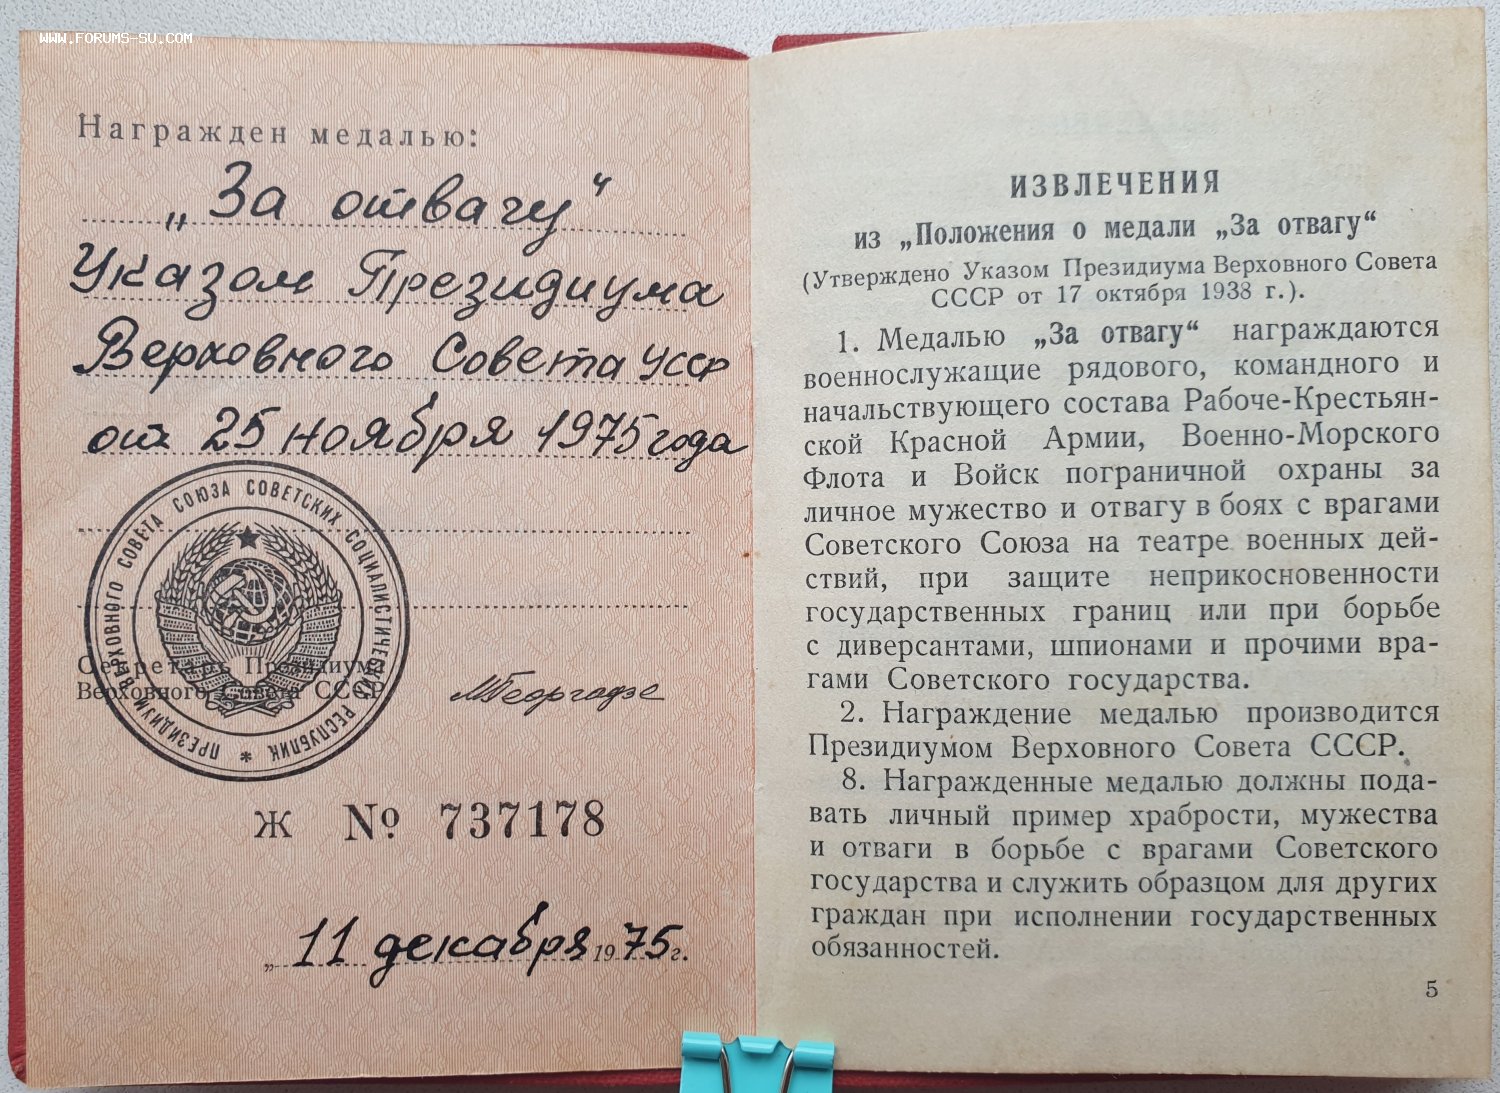 WWW.FORUMS-SU.COM
Награжден медалью:
„За отвагу“
Указом Президиума
Верховного Совета УССР
от 25 ноября 1975 года
ПРЕЗИДИУМ ВЕРХОВНОГО СОВЕТА СОЮЗА СОВЕТСКИХ СОЦИАЛИСТИЧЕСКИХ РЕСПУБЛИК *
Секретарь Президиума
Верховного Совета СССР
МГеоргадзе
Ж № 737178
„11 декабря 1975 г.
ИЗВЛЕЧЕНИЯ
из „Положения о медали „За отвагу“
(Утверждено Указом Президиума Верховного Совета
СССР от 17 октября 1938 г.).
1. Медалью „За отвагу“ награждаются
военнослужащие рядового, командного и
начальствующего состава Рабоче-Крестьян-
ской Красной Армии, Военно-Морского
Флота и Войск пограничной охраны за
личное мужество и отвагу в боях с врагами
Советского Союза на театре военных дей-
ствий, при защите неприкосновенности
государственных границ или при борьбе
с диверсантами, шпионами и прочими вра-
гами Советского государства.
2. Награждение медалью производится
Президиумом Верховного Совета СССР.
8. Награжденные медалью должны пода-
вать личный пример храбрости, мужества
и отваги в борьбе с врагами Советского
государства и служить образцом для других
граждан при исполнении государственных
обязанностей.
5